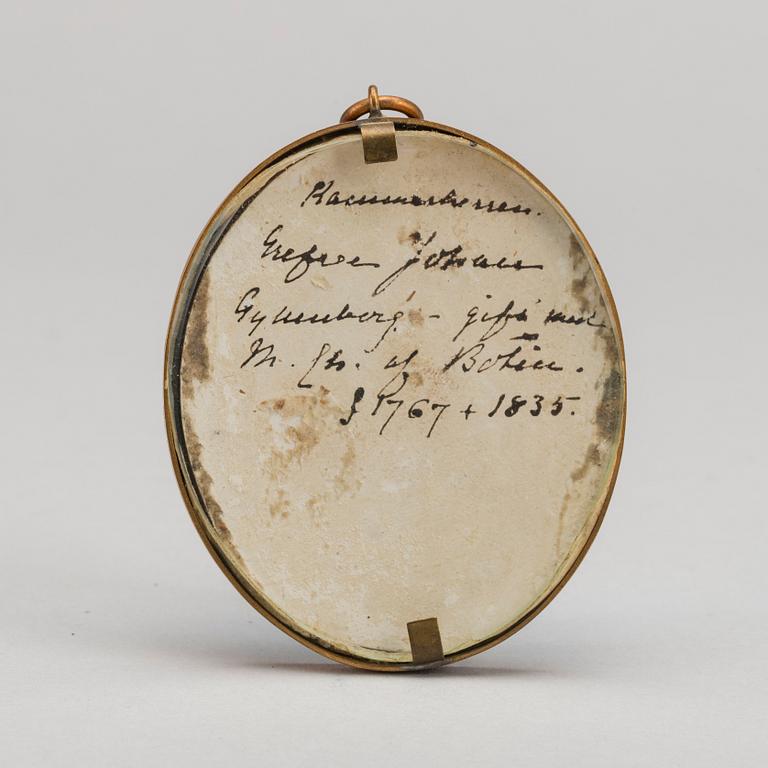 Kammerherren.
Grefve Johan
Gyllenborg - gift med
M. Ch. af Botin.
1767 + 1835.